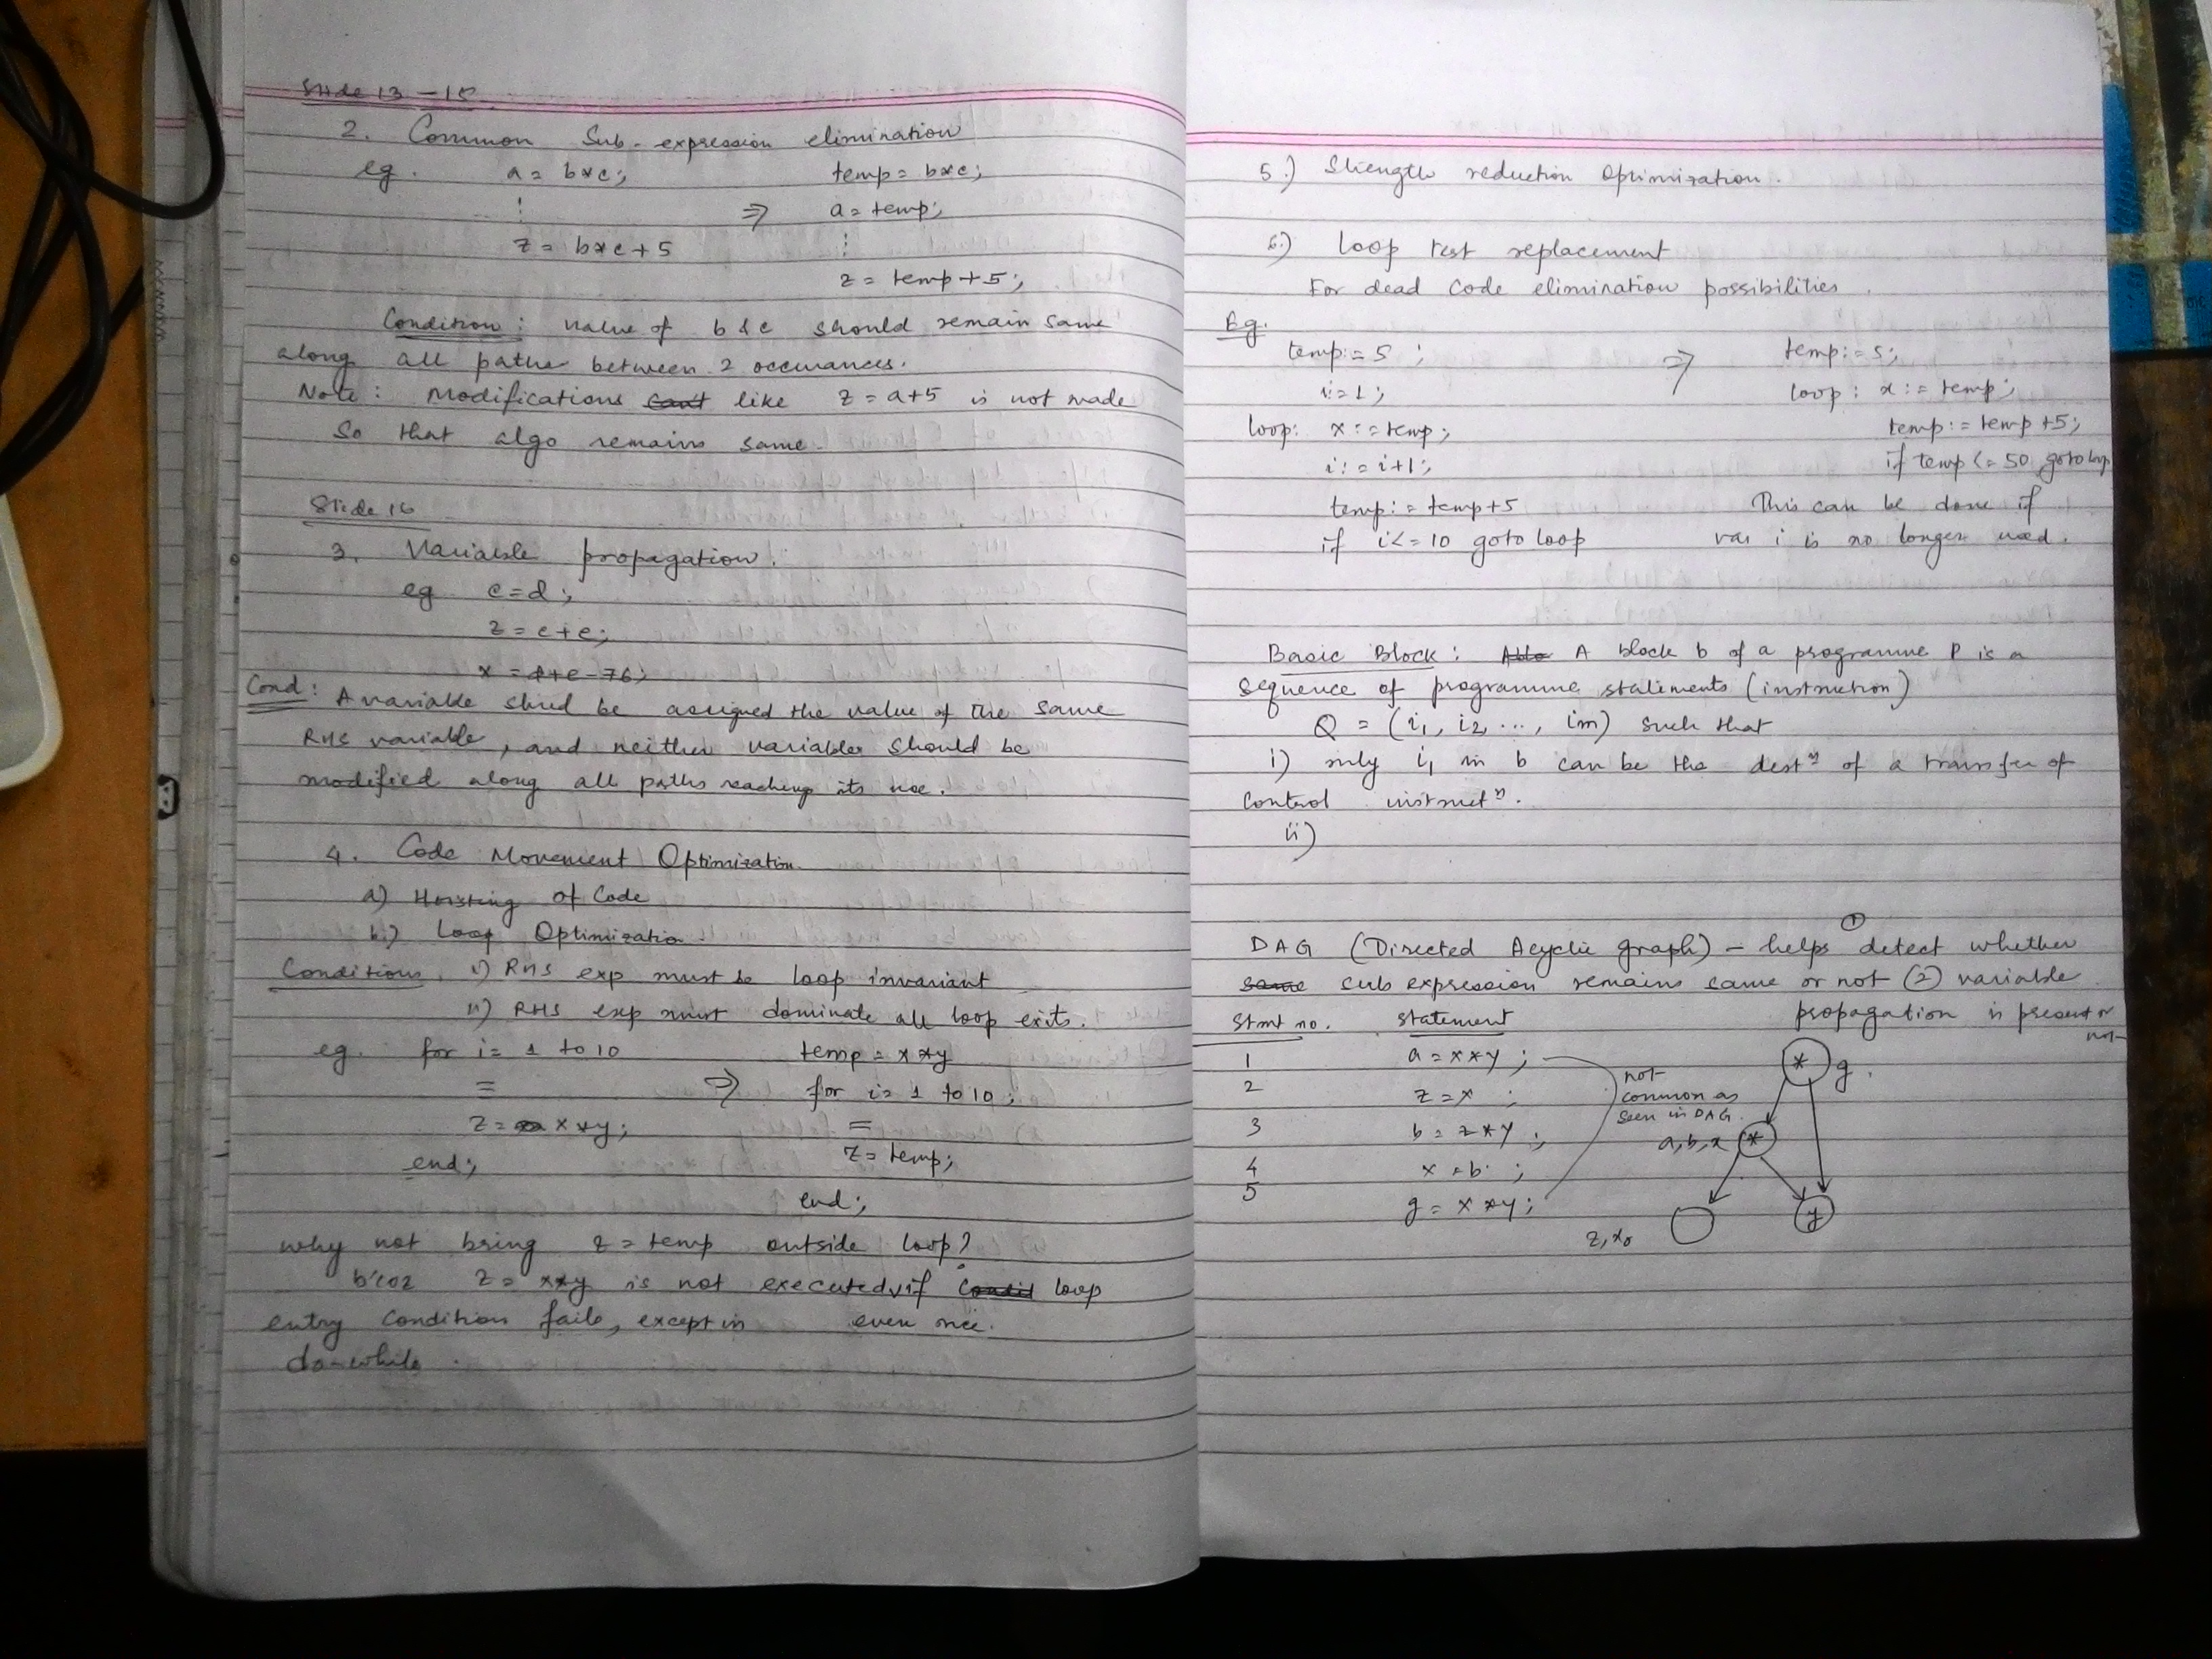 Slide 13 - 15
2. Common Sub-expression elimination
eg. a = b*c; temp = b*c;
⋮ ⇒ a = temp;
z = b*c+5 ⋮
z = temp+5;
Condition: value of b & c should remain same
along all paths between 2 occurances.
Note: Modifications like z = a+5 is not made
So that algo remains same.
Slide 16
3. Variable propagation.
eg c=d;
z = c+e;
x = d+e-76;
Cond: A variable shud be assigned the value of the same
RHS variable, and neither variables should be
modified along all paths reaching its use.
4. Code Movement Optimization
a) Hoisting of Code
b.) Loop Optimization
Conditions. i) RHS exp must be loop invariant
ii) RHS exp must dominate all loop exits.
eg. for i= 1 to 10 temp = x*y
= ⇒ for i= 1 to 10;
z = x*y; =
end; z = temp;
end;
why not bring z = temp outside loop?
b'coz z = x*y is not executed if loop
entry condition fails, except in even once.
do-while.
5.) Strength reduction Optimization.
6.) Loop test replacement
For dead code elimination possibilities.
Eg.
temp:=5; ⇒ temp:=5;
i=1; loop: x:=temp;
loop: x:=temp; temp:=temp+5;
i:=i+1; if temp<=50 goto loop
temp:=temp+5 This can be done if
if i<=10 goto loop var i is no longer used.
Basic Block: A block b of a programme P is a
sequence of programme statements (instruction)
Q = (i1, i2, ..., im) such that
i) only i1 in b can be the destⁿ of a transfer of
control instructⁿ.
ii)
DAG (Directed Acyclic graph) - helps (1) detect whether
sub expression remains same or not (2) variable
propagation is present or
not
Stmt no. statement
1 a = x*y;
2 z = x;
3 b = z*y;
4 x = b;
5 g = x*y;
not
common as
seen in DAG.
* g.
a,b,x *
z,x₀ y